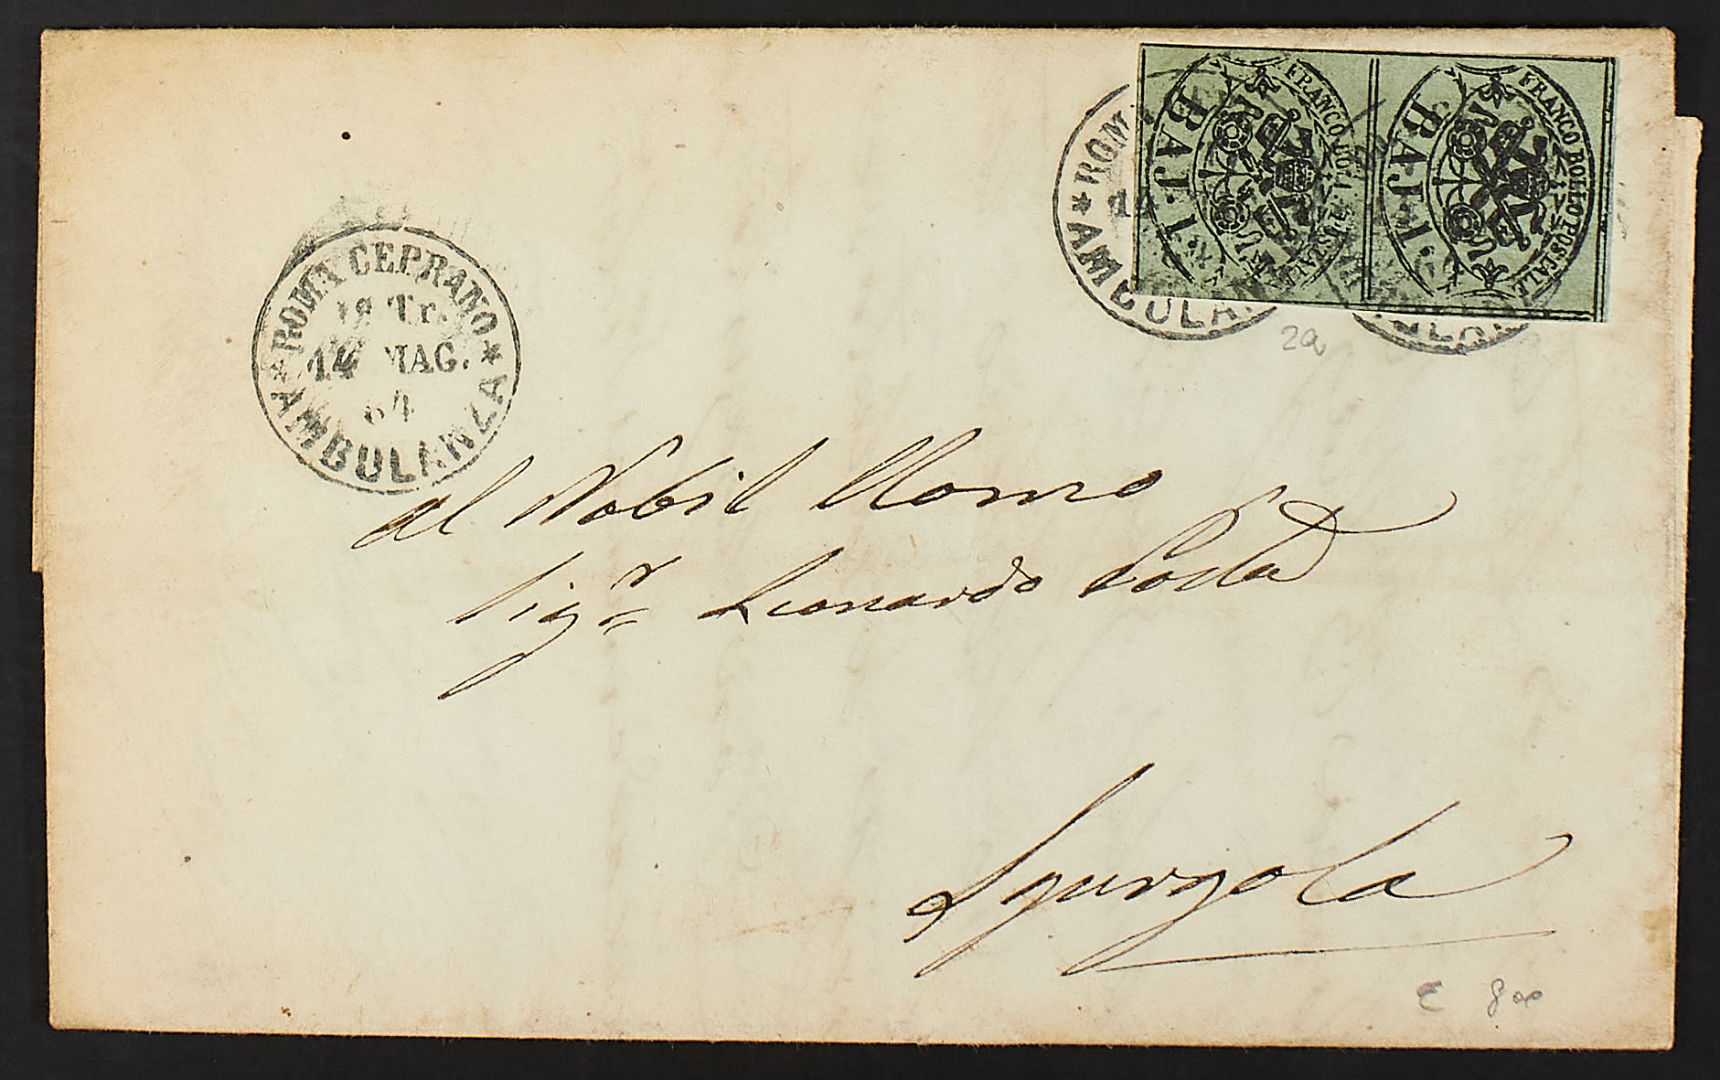 FRANCO BOLLO POSTALE
BAJ·1·
FRANCO BOLLO POSTALE
BAJ·1·
ROM
14
AMBULAN
ULAN
2a
ROMA CEPRANO
1ª Tr.
14 MAG.
64
AMBULANZA
al Nobil Uomo
Sigr Leonardo Posta
Sgurgola